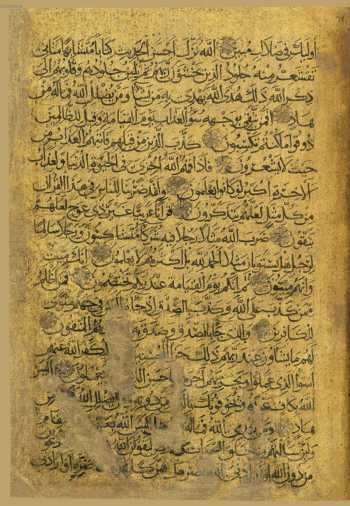 اولئك في ضلال مبين الله نزل احسن الحديث كتابا متشابها مثاني
تقشعر منه جلود الذين يخشون ربهم ثم تلين جلودهم وقلوبهم الى
ذكر الله ذلك هدى الله يهدي به من يشاء ومن يضلل الله فما له من
هاد افمن يتقي بوجهه سوء العذاب يوم القيامة وقيل للظالمين
ذوقوا ما كنتم تكسبون كذب الذين من قبلهم فاتاهم العذاب من
حيث لا يشعرون فاذاقهم الله الخزي في الحيوة الدنيا ولعذاب
الاخرة اكبر لو كانوا يعلمون ولقد ضربنا للناس في هذا القران
من كل مثل لعلهم يتذكرون قرانا عربيا غير ذي عوج لعلهم
يتقون ضرب الله مثلا رجلا فيه شركاء متشاكسون ورجلا سلما
لرجل هل يستويان مثلا الحمد لله بل اكثرهم لا يعلمون انك ميت
وانهم ميتون ثم انكم يوم القيامة عند ربكم تختصمون فمن اظلم
ممن كذب على الله وكذب بالصدق اذ جاءه اليس في جهنم مثوى
للكافرين والذي جاء بالصدق وصدق به هم المتقون
لهم ما يشاؤن عند ربهم ذلك جزاء الله عنهم
اسوا الذي عملوا ويجزيهم اجرهم باحسن الذي يعملون اليس
الله بكاف عبده ويخوفونك بالذين من دونه ومن يضلل الله من
هاد ومن يهد الله فما له اليس الله انتقام
ولئن سالتهم من خلق السموات ليقولن الله
من دون الله ان ارادني الله بضر هل هن ضره او ارادني